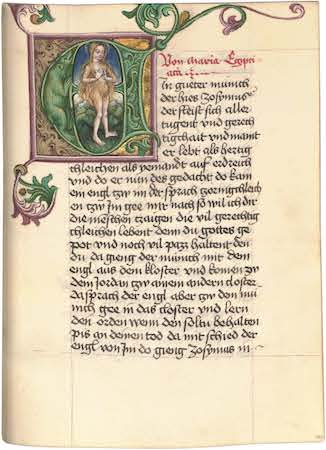 Von maria Egipti
aca
in gueter münich
der hies Zosymus
der fleist sich aller
tugent und gerech
tigchait und maint
er lebt als hertig
chleichen als yemandt auf erdreich
und do er nun des gedacht do kam
ein engl zw im der sprach
en zw Jm gee mir nach so wil ich dir
die menschen tzaigen die vil gerechtig
chleichen lebent denn du gottes ge
pot und noch vil pazz haltent den
du da gieng der münich mit dem
engl aus dem kloster und komen zw
dem Jordan zw ainem andern closter
da sprach der engl aber zw dem mü
nich gee in das closter und lern
den orden wenn den soltu behalten
pis an deinen tod da mit schied der
engl von Jm do gieng Zosymus in